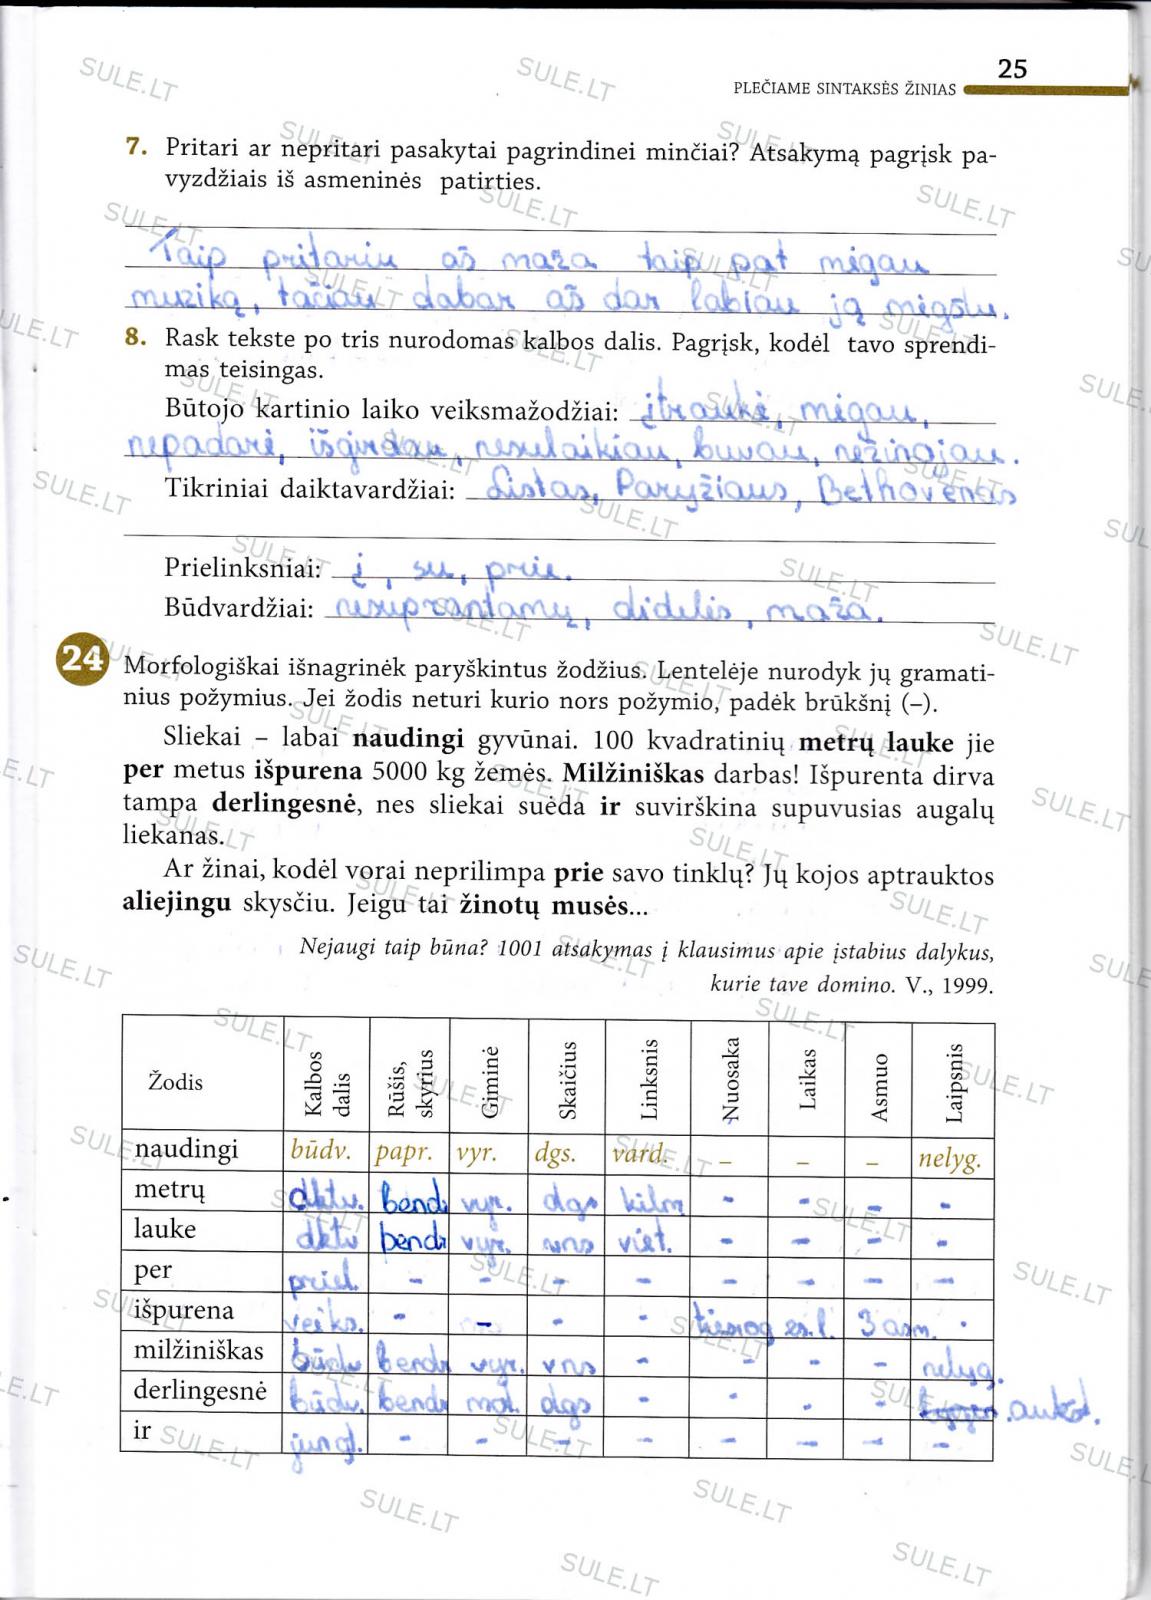 25
PLEČIAME SINTAKSĖS ŽINIAS
7. Pritari ar nepritari pasakytai pagrindinei minčiai? Atsakymą pagrįsk pa-
vyzdžiais iš asmeninės patirties.
Taip pritariu aš maža taip pat mėgau
muziką, tačiau dabar aš dar labiau ją mėgstu.
8. Rask tekste po tris nurodomas kalbos dalis. Pagrįsk, kodėl tavo sprendi-
mas teisingas.
Būtojo kartinio laiko veiksmažodžiai: įtraukė, mėgau,
nepadarė, išgirdau, nesulaikiau, buvau, nežinojau.
Tikriniai daiktavardžiai: Listas, Paryžiaus, Bethovenas
Prielinksniai: į, su, prie.
Būdvardžiai: nesuprantamų, didelis, maža.
24 Morfologiškai išnagrinėk paryškintus žodžius. Lentelėje nurodyk jų gramati-
nius požymius. Jei žodis neturi kurio nors požymio, padėk brūkšnį (–).
Sliekai – labai naudingi gyvūnai. 100 kvadratinių metrų lauke jie
per metus išpurena 5000 kg žemės. Milžiniškas darbas! Išpurenta dirva
tampa derlingesnė, nes sliekai suėda ir suvirškina supuvusias augalų
liekanas.
Ar žinai, kodėl vorai neprilimpa prie savo tinklų? Jų kojos aptrauktos
aliejingu skysčiu. Jeigu tai žinotų musės...
Nejaugi taip būna? 1001 atsakymas į klausimus apie įstabius dalykus,
kurie tave domino. V., 1999.
Žodis Kalbos dalis Rūšis, skyrius Giminė Skaičius Linksnis Nuosaka Laikas Asmuo Laipsnis
naudingi būdv. papr. vyr. dgs. vard. – – – nelyg.
metrų dktv. bendr vyr. dgs kilm - - - -
lauke dktv bendr vyr. vns viet. - - - -
per priel. - - - - - - - -
išpurena veiks. - - - - tiesiog es.l. 3 asm. .
milžiniškas būdv bendr vyr. vns - - - - nelyg.
derlingesnė būdv. bendr mot. dgs - - - - aukšt.
ir jungt. - - - - - - - -
SULE.LT